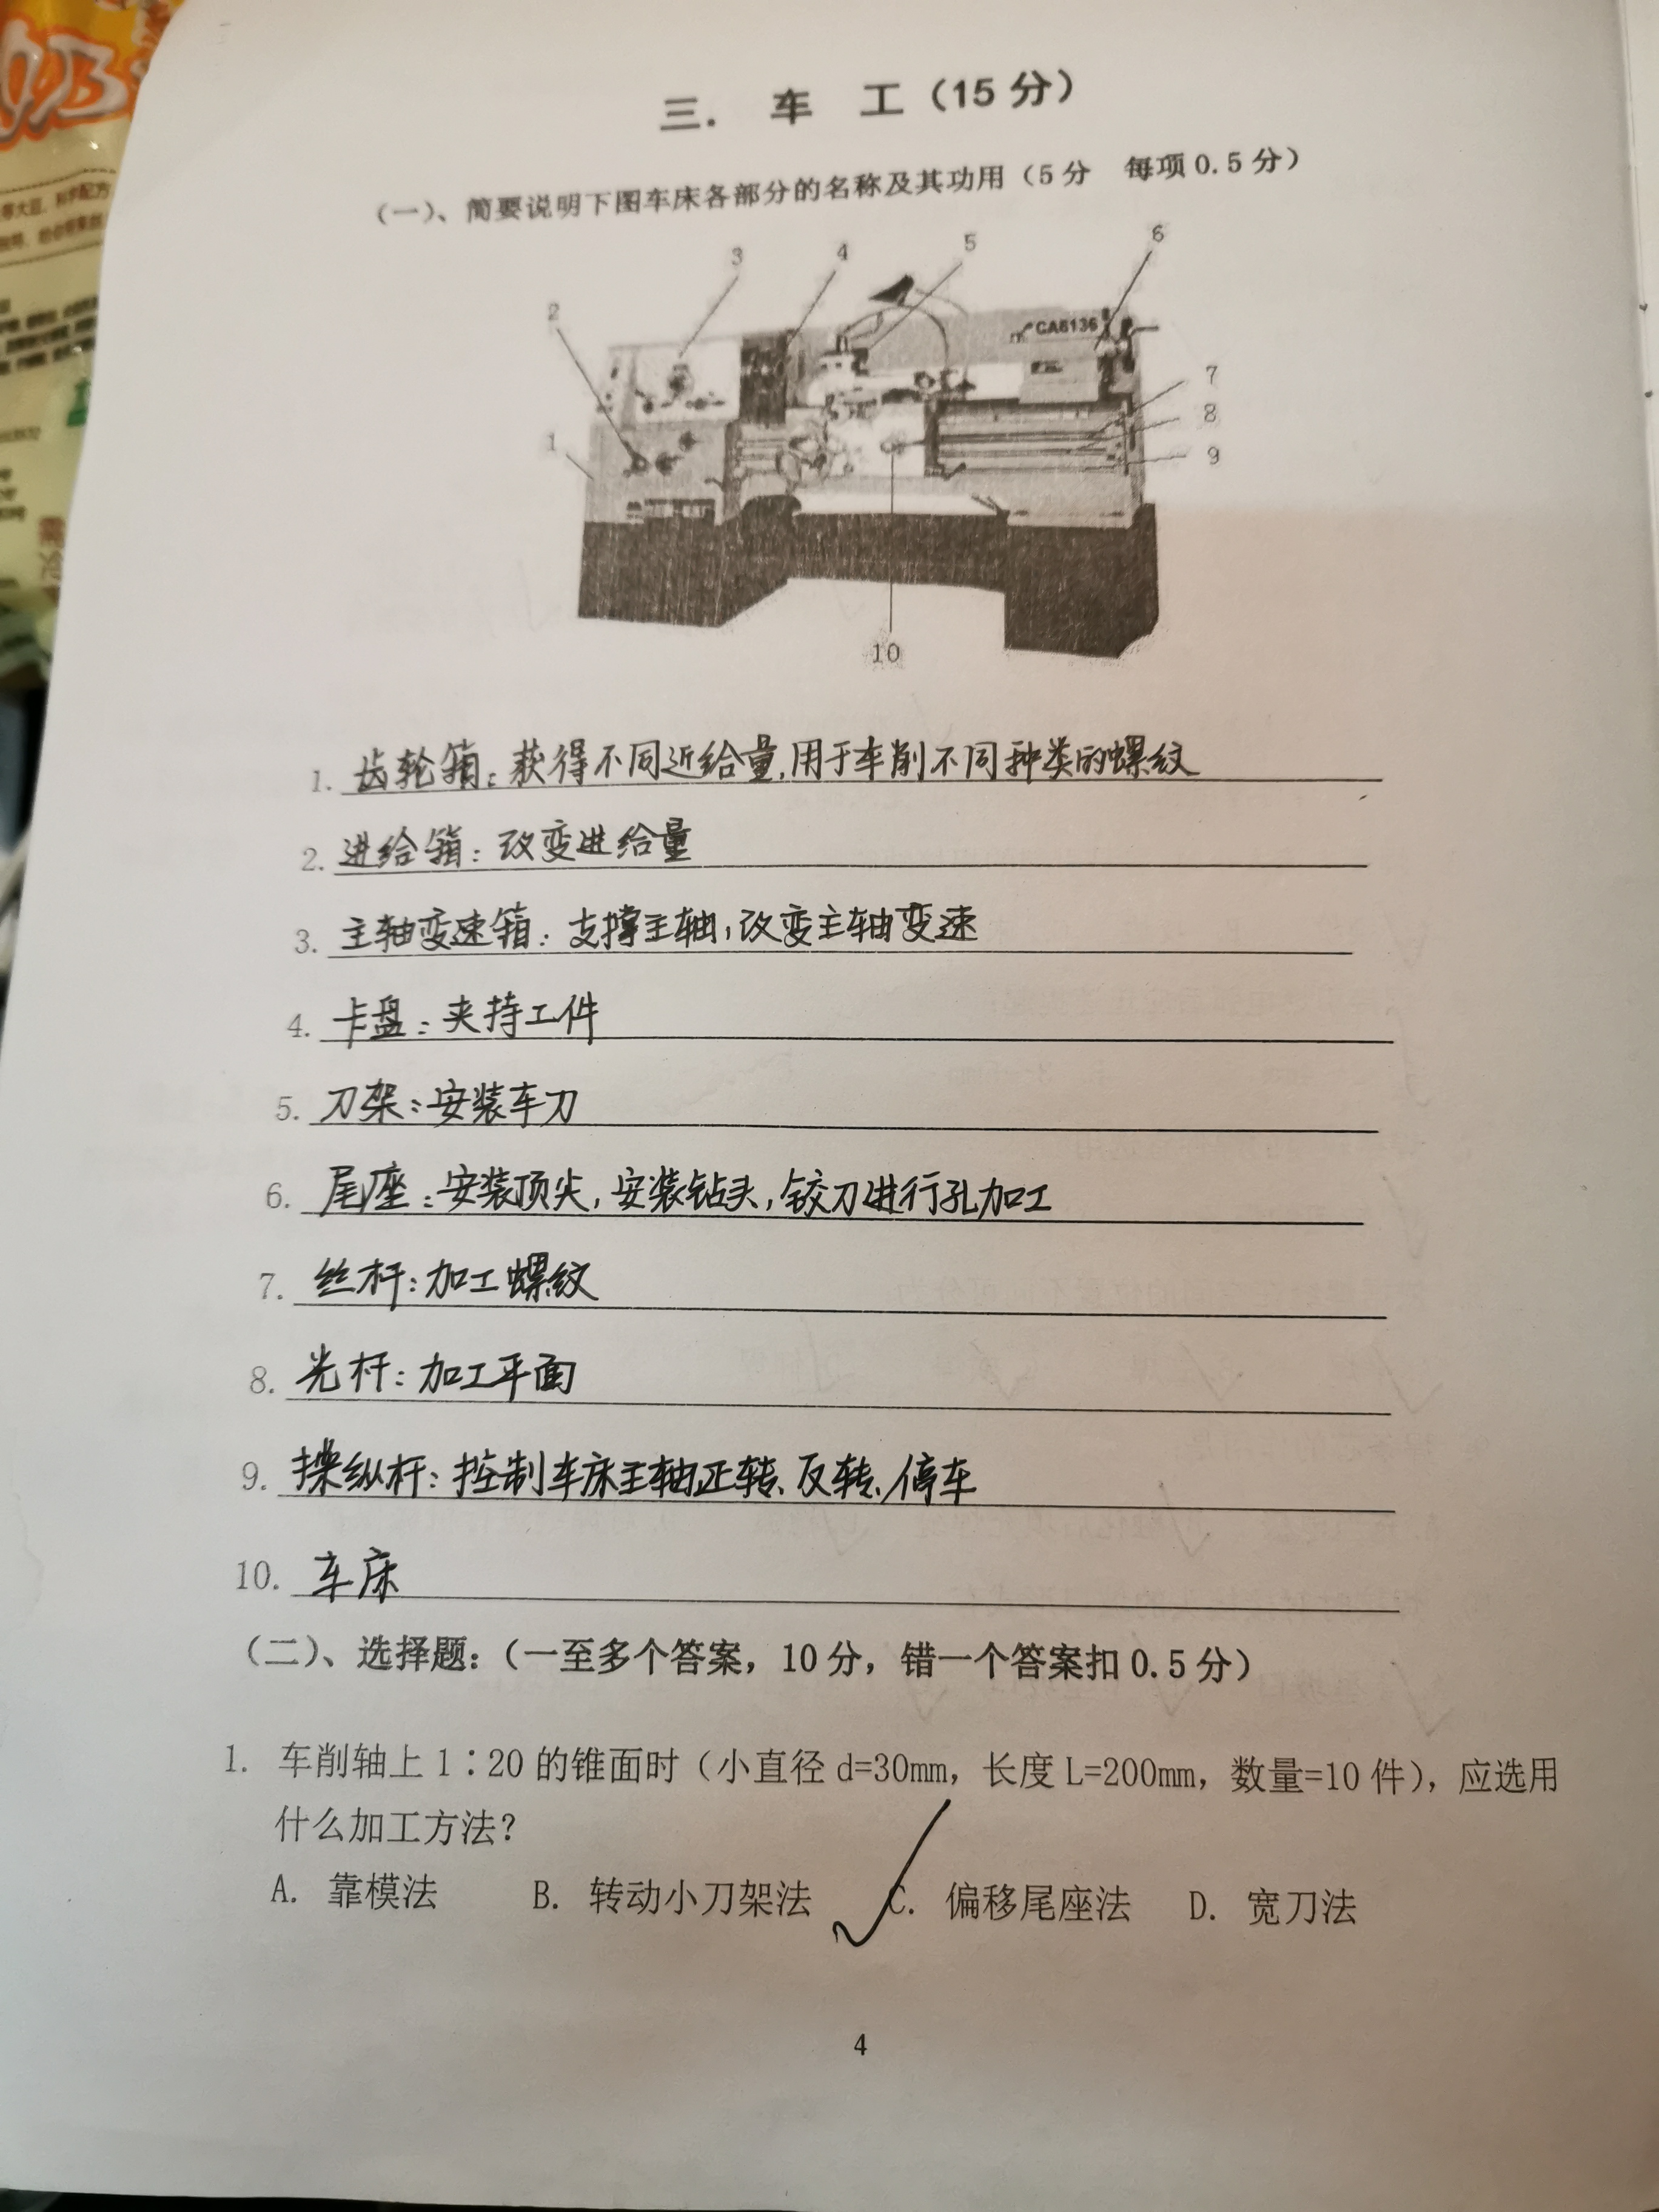 三. 车 工（15 分）
（一）、简要说明下图车床各部分的名称及其功用（5 分 每项 0.5 分）
1
2
3
4
5
6
7
8
9
10
CA6136
1. 齿轮箱：获得不同近给量,用于车削不同种类的螺纹
2. 进给箱：改变进给量
3. 主轴变速箱：支撑主轴,改变主轴变速
4. 卡盘：夹持工件
5. 刀架：安装车刀
6. 尾座：安装顶尖,安装钻头,铰刀进行孔加工
7. 丝杆：加工螺纹
8. 光杆：加工平面
9. 操纵杆：控制车床主轴正转、反转、停车
10. 车床
（二）、选择题：（一至多个答案，10 分，错一个答案扣 0.5 分）
1. 车削轴上 1∶20 的锥面时（小直径 d=30mm，长度 L=200mm，数量=10 件），应选用
什么加工方法？
A. 靠模法 B. 转动小刀架法 C. 偏移尾座法 D. 宽刀法
4